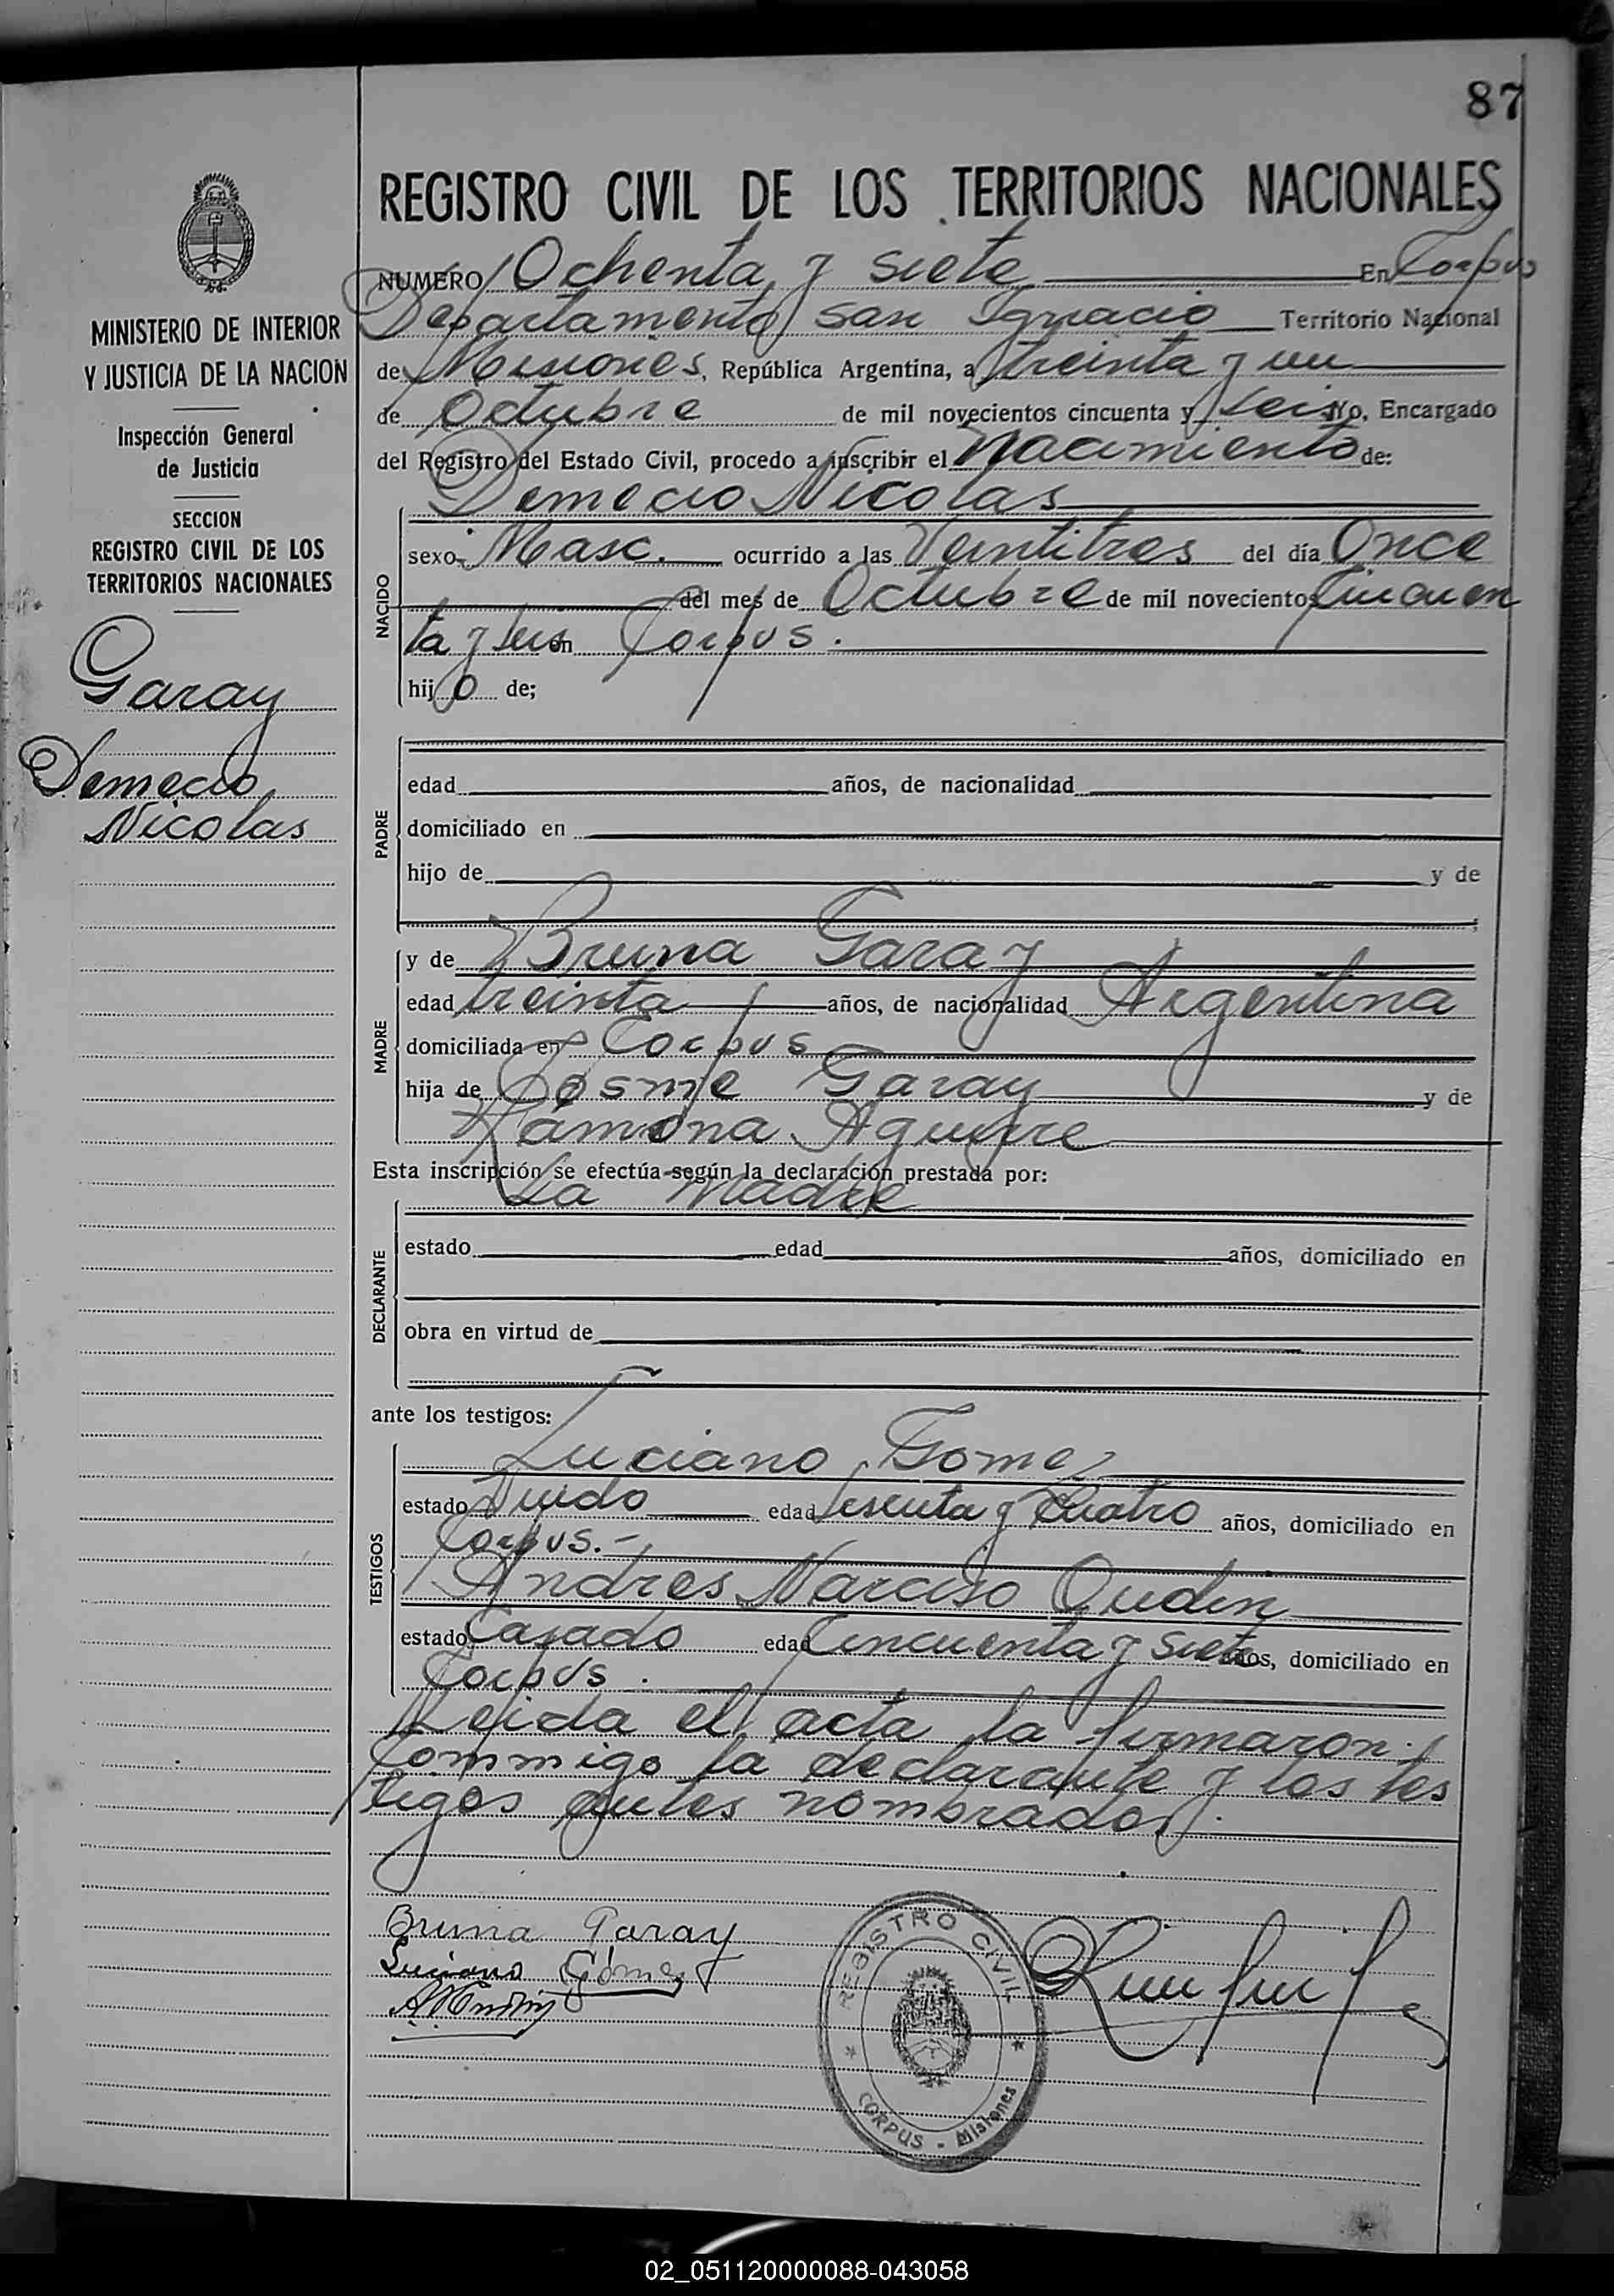 87
REGISTRO CIVIL DE LOS TERRITORIOS NACIONALES
NUMERO Ochenta y siete En Corpus
Departamento San Ignacio Territorio Nacional
de Misiones, República Argentina, a treinta y un
de Octubre de mil novecientos cincuenta y seis Yo, Encargado
del Registro del Estado Civil, procedo a inscribir el Nacimiento de:
Demecio Nicolas
NACIDO
sexo Masc. ocurrido a las Veintitres del día Once
del mes de Octubre de mil novecientos Cincuen
ta y seis en Corpus.
hijo de;
PADRE
edad años, de nacionalidad
domiciliado en
hijo de y de
MADRE
y de Bruna Garay
edad treinta años, de nacionalidad Argentina
domiciliada en Corpus
hija de Cosme Garay y de
Ramona Aguirre
Esta inscripción se efectúa según la declaración prestada por:
La Madre
DECLARANTE
estado edad años, domiciliado en
obra en virtud de
ante los testigos:
TESTIGOS
Luciano Gomez
estado Viudo edad sesenta y Cuatro años, domiciliado en
Corpus.-
Andres Narciso Oudin
estado Casado edad Cincuenta y siete años, domiciliado en
Corpus.
Leida el acta la firmaron
Commigo la declarante y los tes
tigos antes nombrados.
Bruna Garay
Luciano Gómez
REGISTRO CIVIL
CORPUS - Misiones
MINISTERIO DE INTERIOR
Y JUSTICIA DE LA NACION
Inspección General
de Justicia
SECCION
REGISTRO CIVIL DE LOS
TERRITORIOS NACIONALES
Garay
Demecio
Nicolas
02_051120000088-043058